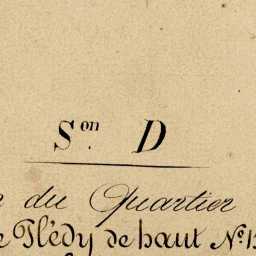 Son. D
du Quartier
Plédy de haut No. 1